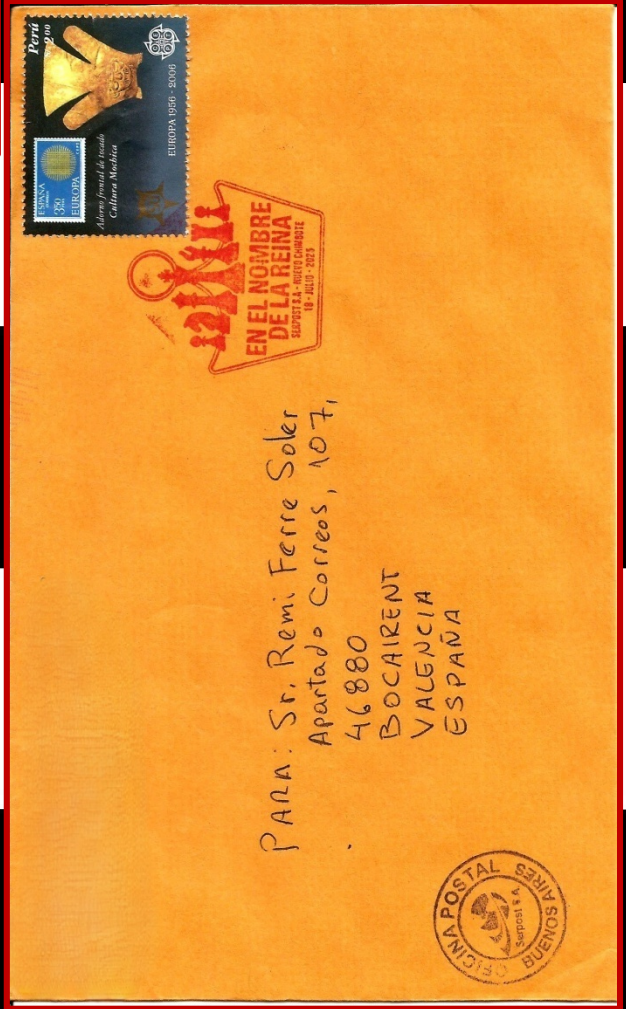 Perú
2.00
EUROPA 1956 - 2006
Adorno frontal de tocado
Cultura Mochica
ESPAÑA
EUROPA
EN EL NOMBRE
DE LA REINA
SERPOST S.A - NUEVO CHIMBOTE
18 - JULIO - 2025
PARA: Sr. Remi Ferre Soler
Apartado Correos, 107,
46880
BOCAIRENT
VALENCIA
ESPAÑA
OFICINA POSTAL
Serpost S.A.
BUENOS AIRES